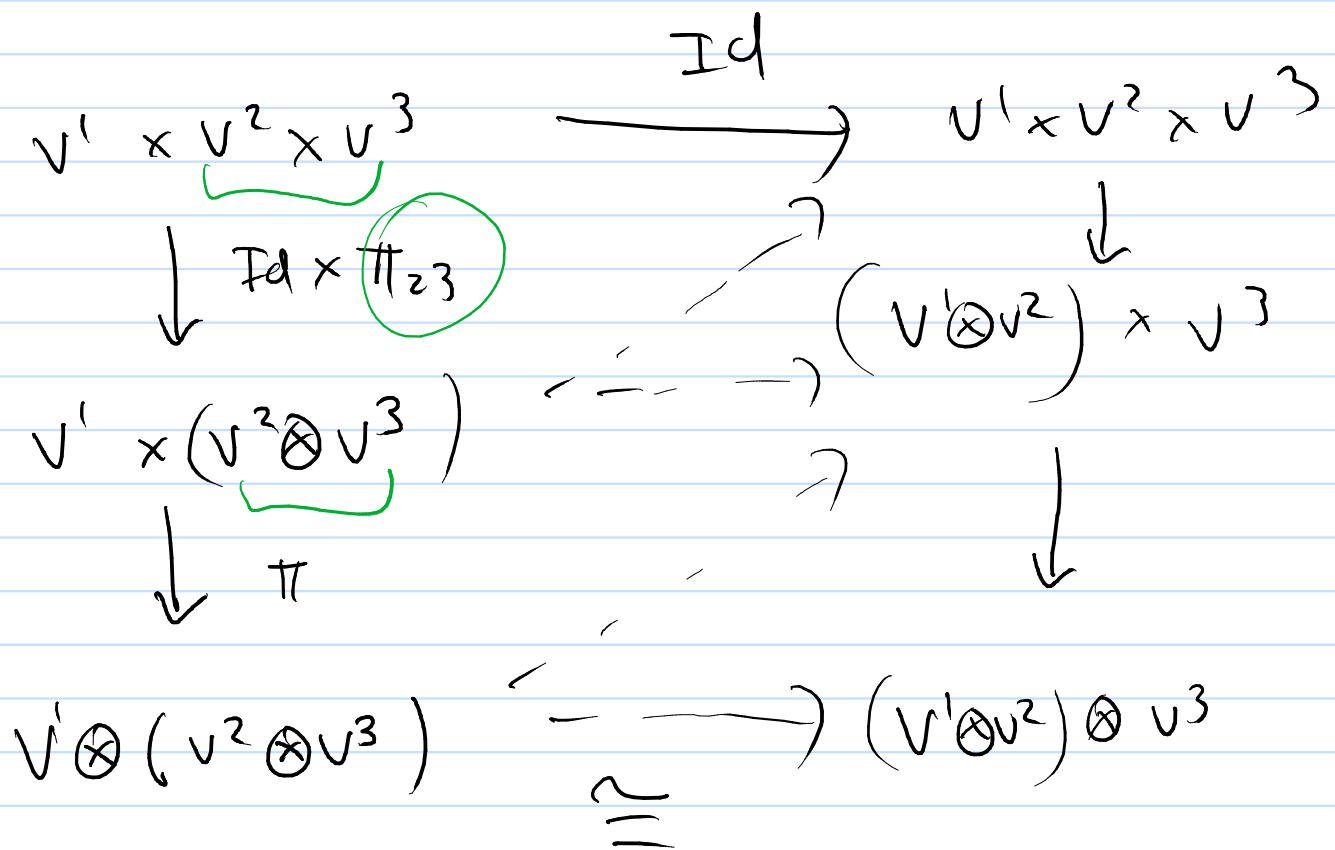 Id
V¹ × V² × V³ V¹ × V² × V³
Id × π₂₃
(V¹ ⊗ V²) × V³
V¹ × (V² ⊗ V³)
π
V¹ ⊗ (V² ⊗ V³) (V¹ ⊗ V²) ⊗ V³
≅